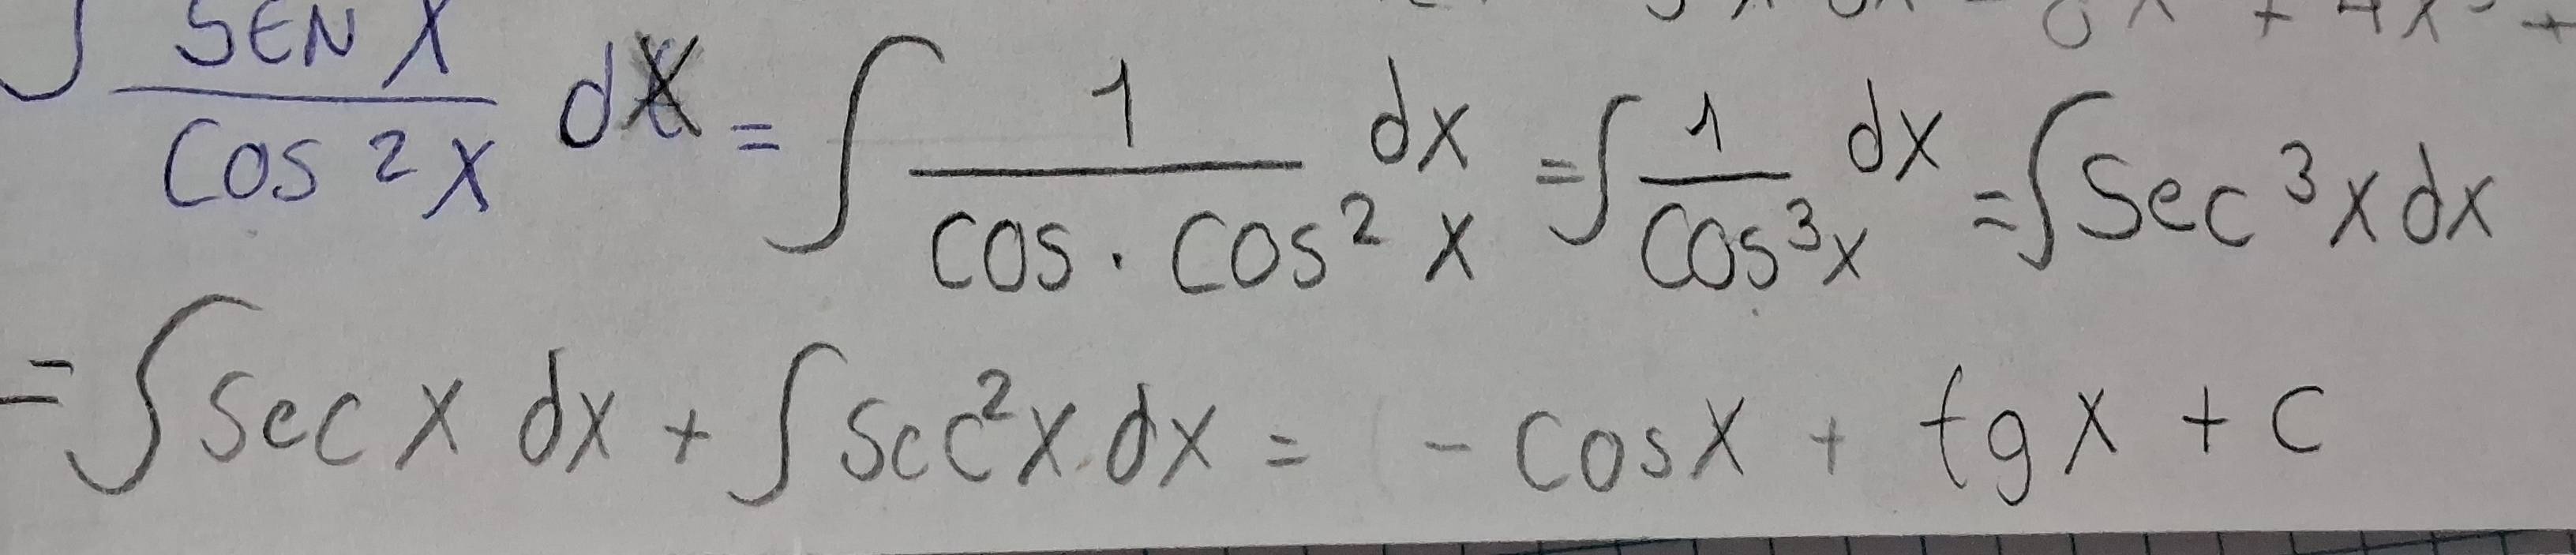 ∫ SEN X / COS ² X dX = ∫ 1 / COS · COS² X dx = ∫ 1 / COS³ X dx = ∫ Sec³ x dx
= ∫ Sec x dx + ∫ Sec² x dx = - cos x + tg x + c